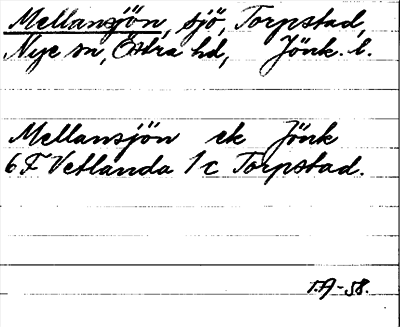 Mellansjön, sjö, Torpstad,
Nye sn, Östra hd, Jönk. l.
Mellansjön ek Jönk
6F Vetlanda 1c Torpstad.
T.A-58.